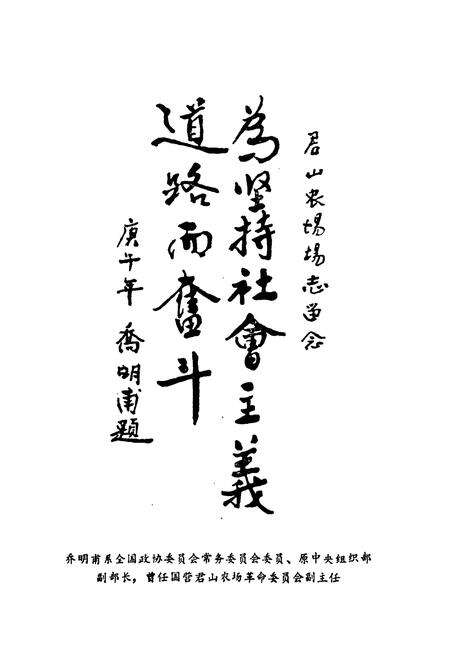 君山农场場志留念
為坚持社會主義
道路而奮斗
庚午年 喬明甫題
乔明甫系全国政协委员会常务委员会委员、原中央组织部
副部长，曾任国营君山农场革命委员会副主任